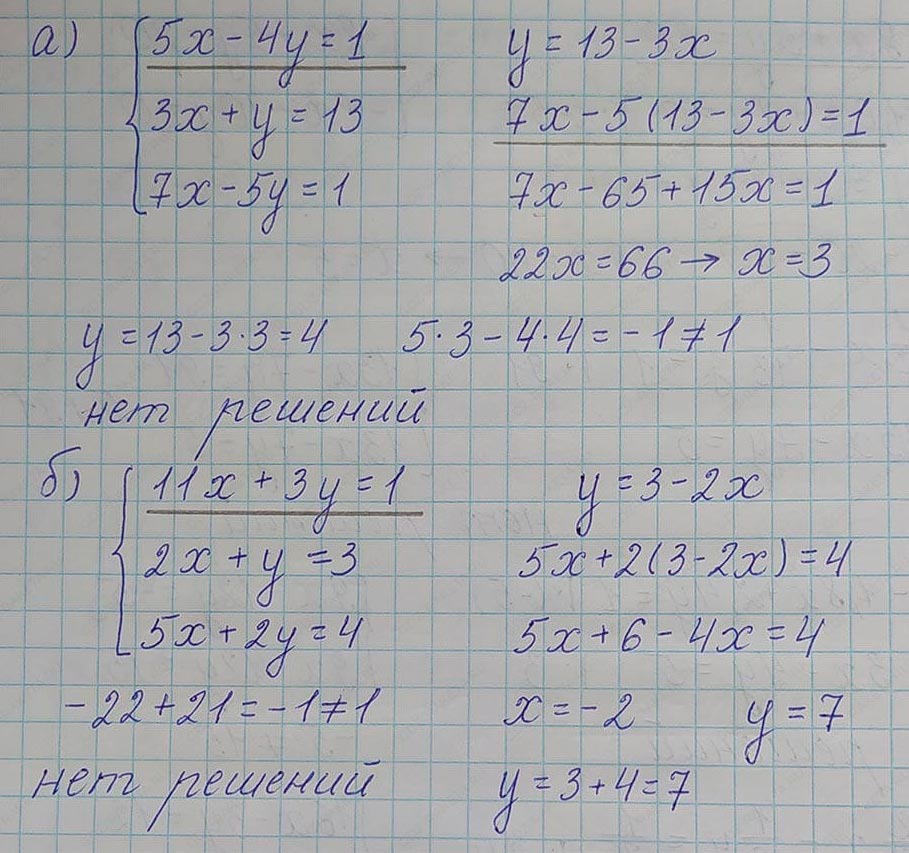 а) 5x - 4y = 1 y = 13 - 3x
3x + y = 13 7x - 5(13 - 3x) = 1
7x - 5y = 1 7x - 65 + 15x = 1
22x = 66 → x = 3
y = 13 - 3·3 = 4 5·3 - 4·4 = -1 ≠ 1
нет решений
б) 11x + 3y = 1 y = 3 - 2x
2x + y = 3 5x + 2(3 - 2x) = 4
5x + 2y = 4 5x + 6 - 4x = 4
-22 + 21 = -1 ≠ 1 x = -2 y = 7
нет решений y = 3 + 4 = 7